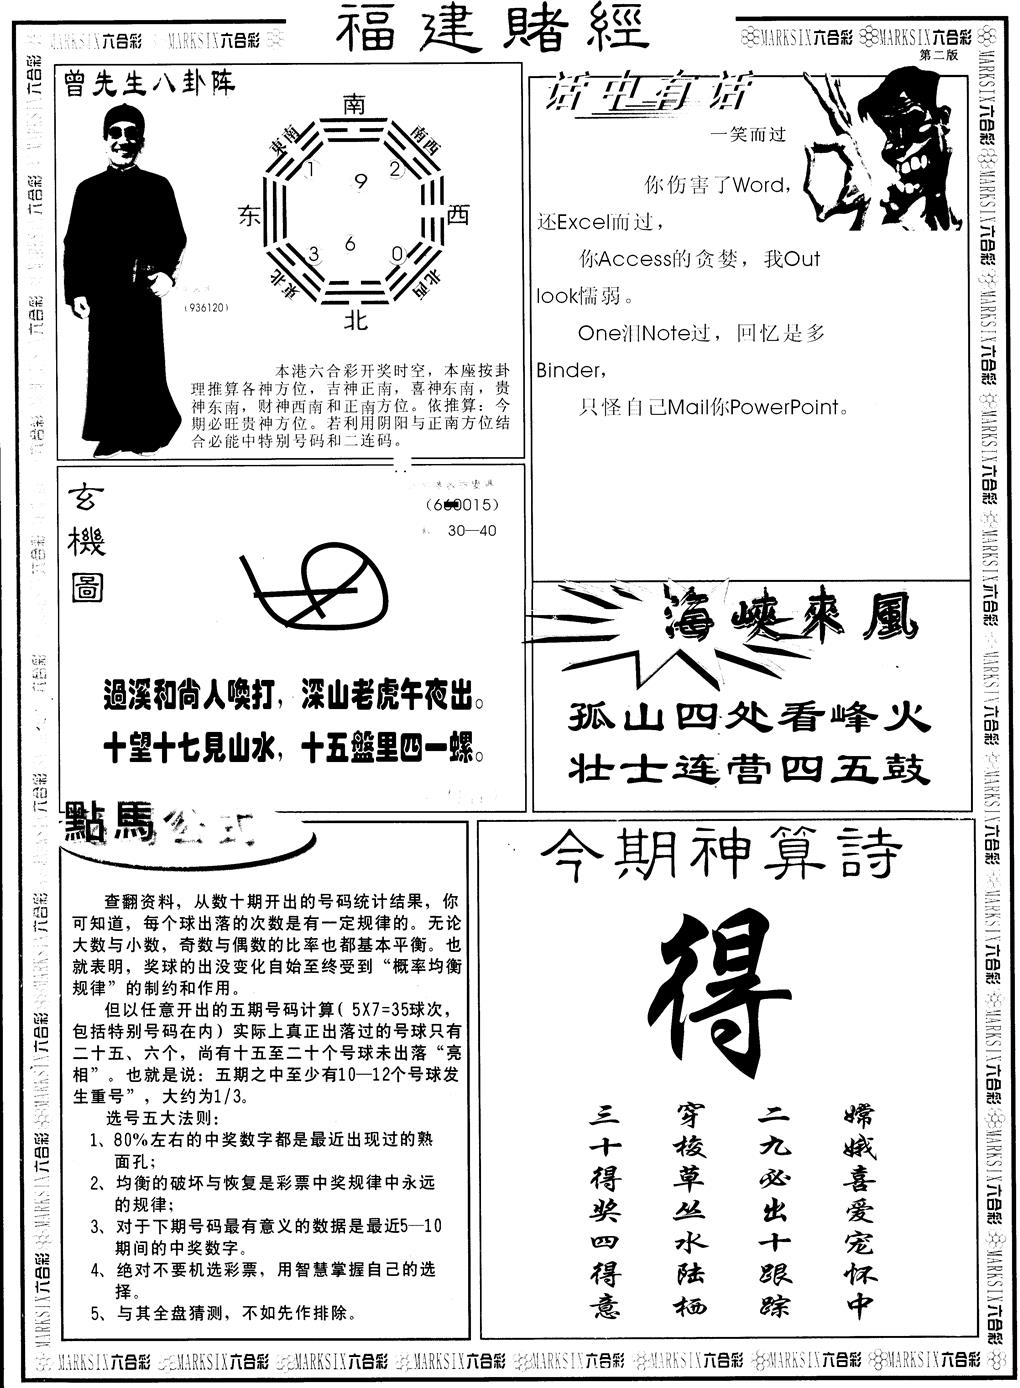 福建賭經
MARKSIX六合彩 MARKSIX六合彩
MARKSIX六合彩 MARKSIX六合彩
第二版
曾先生八卦阵
南
東南
南西
1
9
2
东
西
3
6
0
東北
北西
北
(936120)
本港六合彩开奖时空，本座按卦
理推算各神方位，吉神正南，喜神东南，贵
神东南，财神西南和正南方位。依推算：今
期必旺贵神方位。若利用阴阳与正南方位结
合必能中特别号码和二连码。
话中有话
一笑而过
你伤害了Word，
还Excel而过，
你Access的贪婪，我Out
look懦弱。
One泪Note过，回忆是多
Binder，
只怪自己Mail你PowerPoint。
玄機圖
30—40
過溪和尚人喚打，深山老虎午夜出。
十望十七見山水，十五盤里四一螺。
海峽來風
孤山四处看峰火
壮士连营四五鼓
點馬公式
查翻资料，从数十期开出的号码统计结果，你
可知道，每个球出落的次数是有一定规律的。无论
大数与小数，奇数与偶数的比率也都基本平衡。也
就表明，奖球的出没变化自始至终受到“概率均衡
规律”的制约和作用。
但以任意开出的五期号码计算( 5X7=35球次，
包括特别号码在内) 实际上真正出落过的号球只有
二十五、六个，尚有十五至二十个号球未出落“亮
相”。也就是说：五期之中至少有10—12个号球发
生重号”，大约为1/3。
选号五大法则：
1、80%左右的中奖数字都是最近出现过的熟
面孔；
2、均衡的破坏与恢复是彩票中奖规律中永远
的规律；
3、对于下期号码最有意义的数据是最近5—10
期间的中奖数字。
4、绝对不要机选彩票，用智慧掌握自己的选
择。
5、与其全盘猜测，不如先作排除。
今期神算詩
得
嫦娥喜爱宠怀中
二九必出十跟踪
穿梭草丛水陆栖
三十得奖四得意
MARKSIX六合彩 MARKSIX六合彩 MARKSIX六合彩 MARKSIX六合彩 MARKSIX六合彩 MARKSIX六合彩 MARKSIX六合彩 MARKSIX六合彩